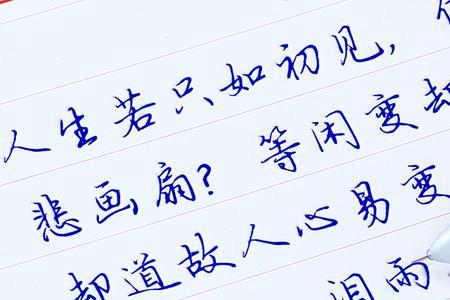 人生若只如初见，
悲画扇？等闲变却
却道故人心易变
泪雨